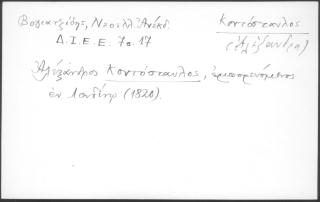 Βογιατζίδης, Νεοελλ. Ἀνέκδ.
Δ.Ι.Ε.Ε. 7ο.17
Κοντόσταυλος
(Ἀλέξανδρος)
Ἀλέξανδρος Κοντόσταυλος, ἐμπορευόμενος
ἐν Λονδίνῳ (1820).